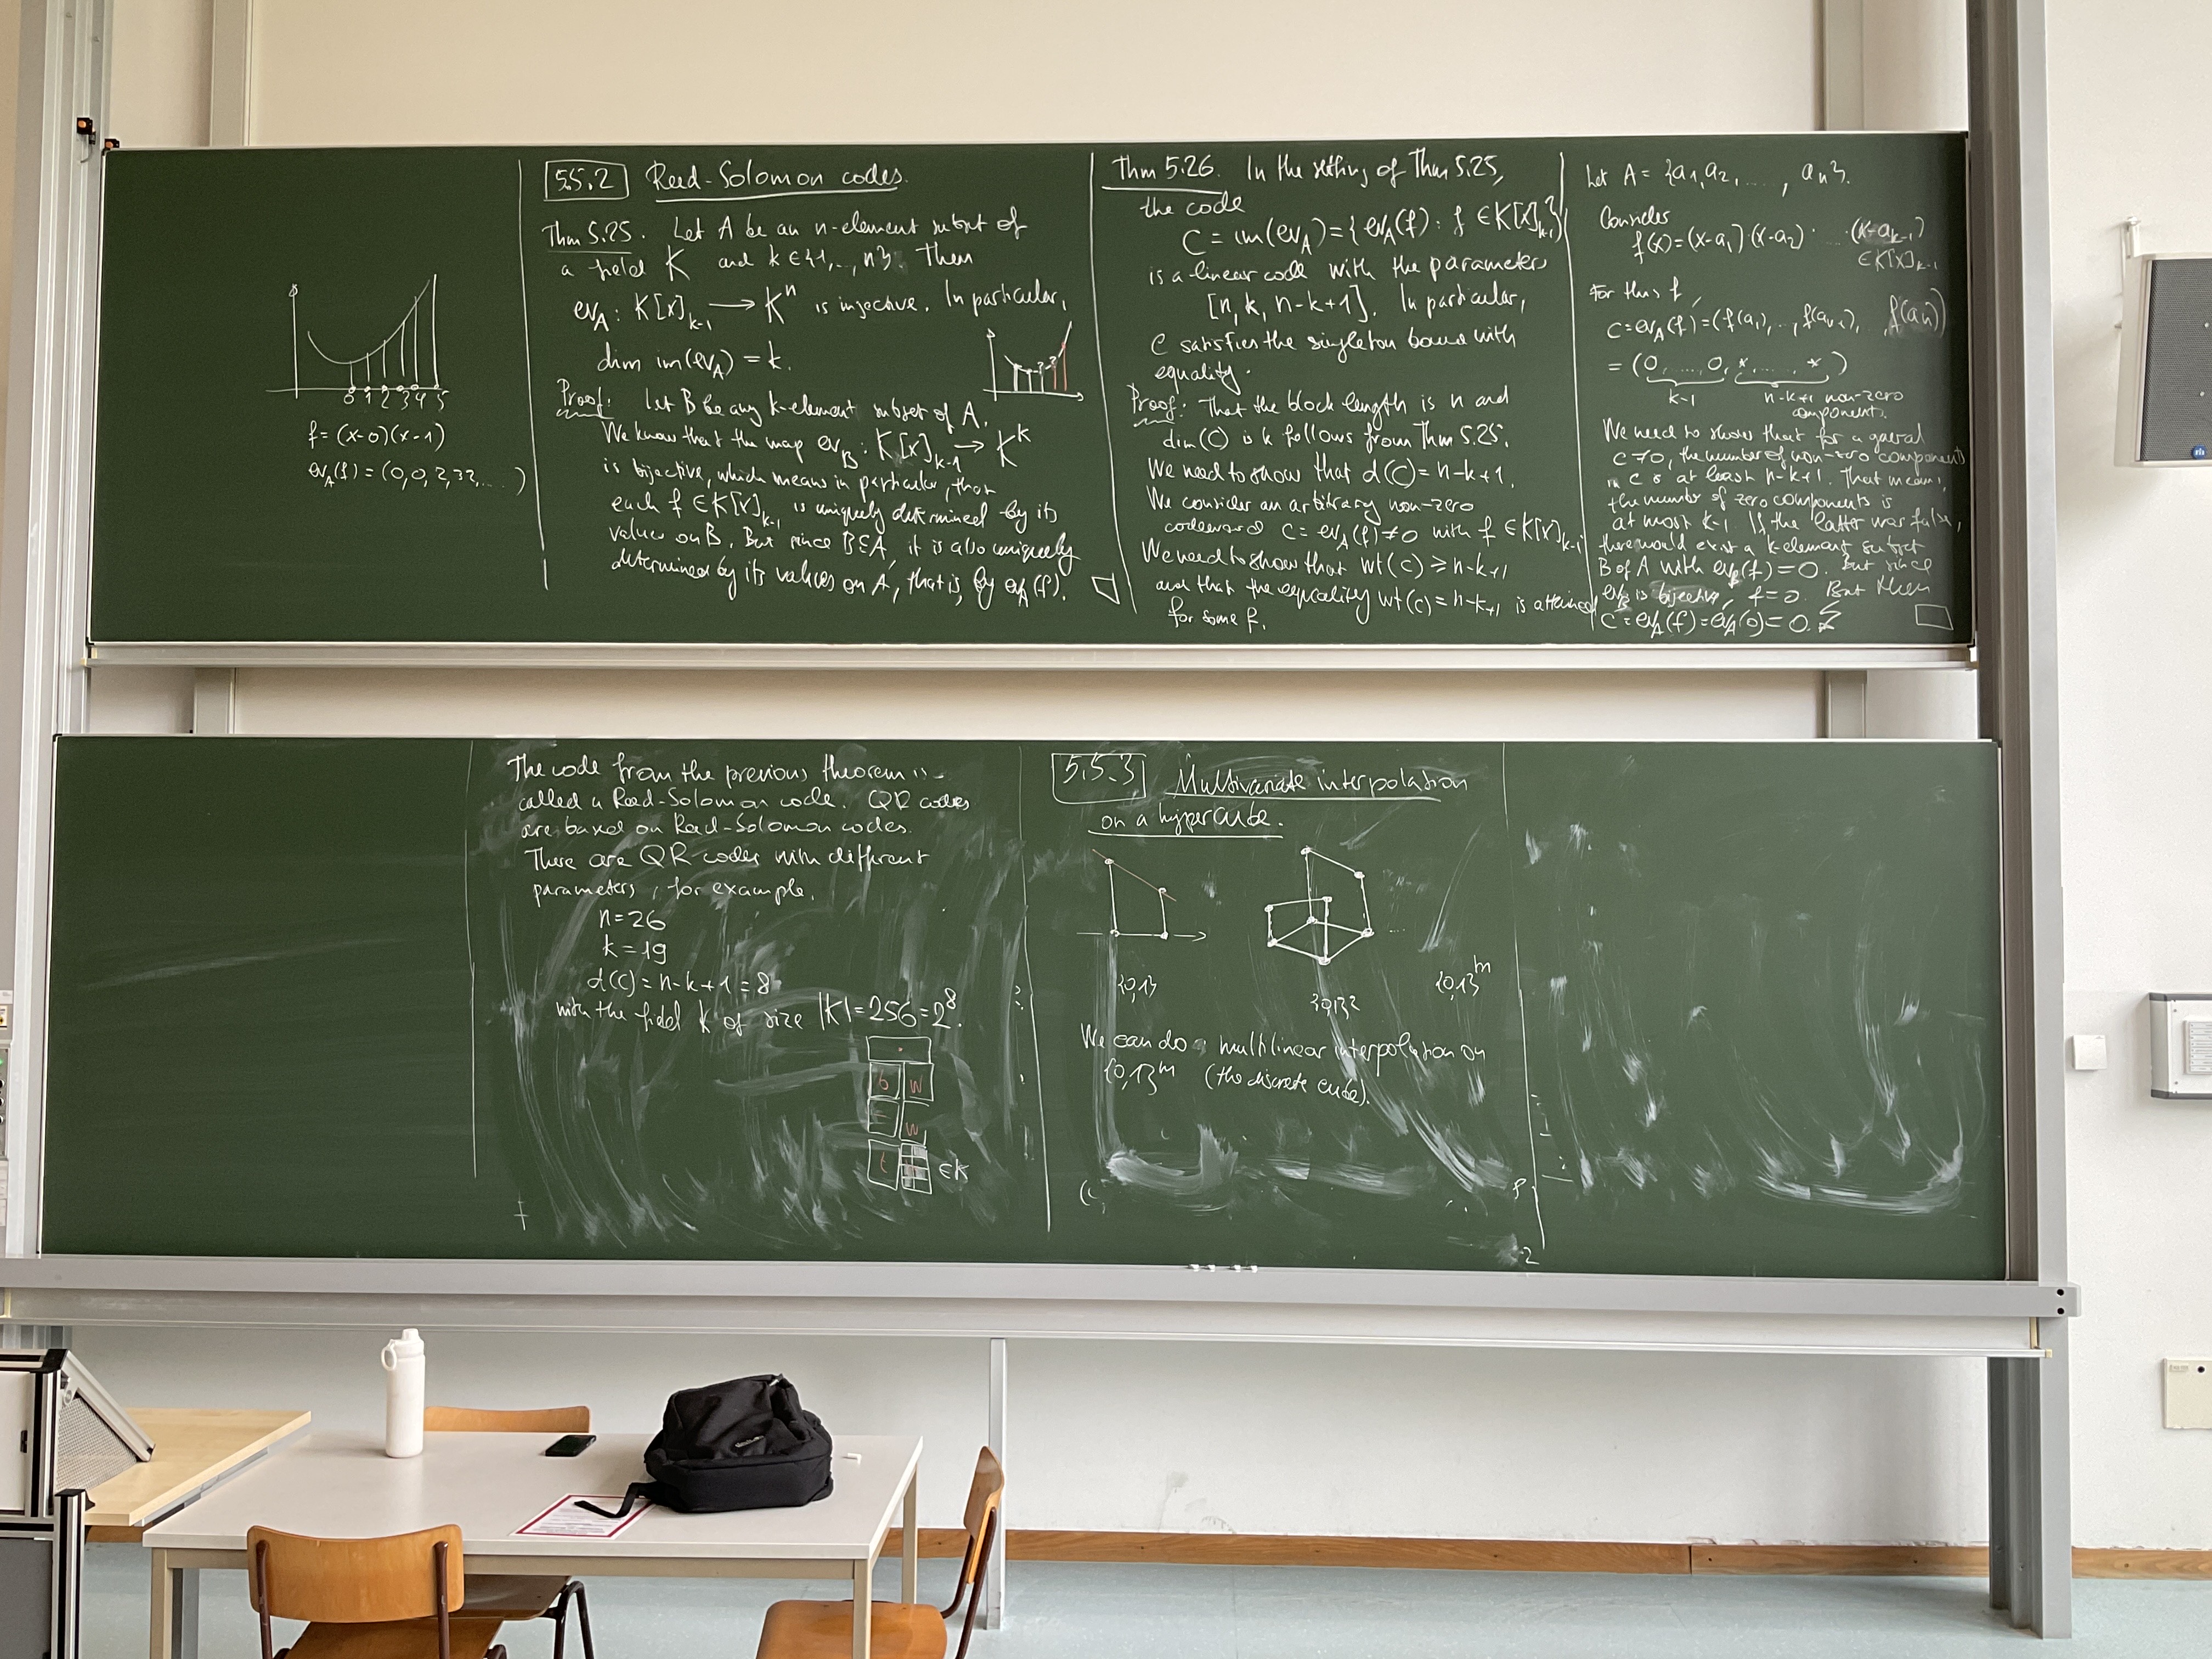 0 1 2 3 4 5
f = (x-0)(x-1)
ev_A(f) = (0, 0, 2, 32, .... )
5.5.2 Reed-Solomon codes.
Thm 5.25. Let A be an n-element subset of
a field K and k ∈ {1,..,n}. Then
ev_A : K[x]_{k-1} → K^n is injective. In particular,
dim im(ev_A) = k.
Proof: Let B be any k-element subset of A.
We know that the map ev_B : K[x]_{k-1} → K^k
is bijective, which means in particular, that
each f ∈ K[x]_{k-1} is uniquely determined by its
values on B. But since B⊆A, it is also uniquely
determined by its values on A, that is, by ev_A(f). □
Thm 5.26. In the setting of Thm 5.25,
the code
C = im(ev_A) = {ev_A(f) : f ∈ K[x]_{k-1}}
is a linear code with the parameters
[n, k, n-k+1]. In particular,
C satisfies the singleton bound with
equality.
Proof: That the block length is n and
dim(C) is k follows from Thm 5.25.
We need to show that d(C) = n-k+1.
We consider an arbitrary non-zero
codeword c = ev_A(f) ≠ 0 with f ∈ K[x]_{k-1}
We need to show that wt(c) ≥ n-k+1
and that the equality wt(c) = n-k+1 is attained
for some f.
Let A = {a_1, a_2, ...., a_n}.
Consider
f(x) = (x-a_1)·(x-a_2)· .... ·(x-a_{k-1})
∈ K[x]_{k-1}
For this f,
c = ev_A(f) = (f(a_1), .., f(a_{k-1}), f(a_n))
= (0, ...., 0, *, ...., *)
k-1 n-k+1 non-zero
components.
We need to show that for a general
c ≠ 0, the number of non-zero components
in c is at least n-k+1. That means,
the number of zero components is
at most k-1. If the latter was false,
there would exist a k-element subset
B of A with ev_B(f) = 0. But since
ev_B is bijective, f = 0. But then
c = ev_A(f) = ev_A(0) = 0. ↯ □
The code from the previous theorem is
called a Reed-Solomon code. QR codes
are based on Reed-Solomon codes.
There are QR codes with different
parameters, for example,
n = 26
k = 19
d(C) = n-k+1 = 8
with the field K of size |K| = 256 = 2^8.
b W
W
t ∈ K
5.5.3 Multivariate interpolation
on a hypercube.
{0,1} {0,1}^2 {0,1}^m
We can do multilinear interpolation on
{0,1}^m (the discrete cube).